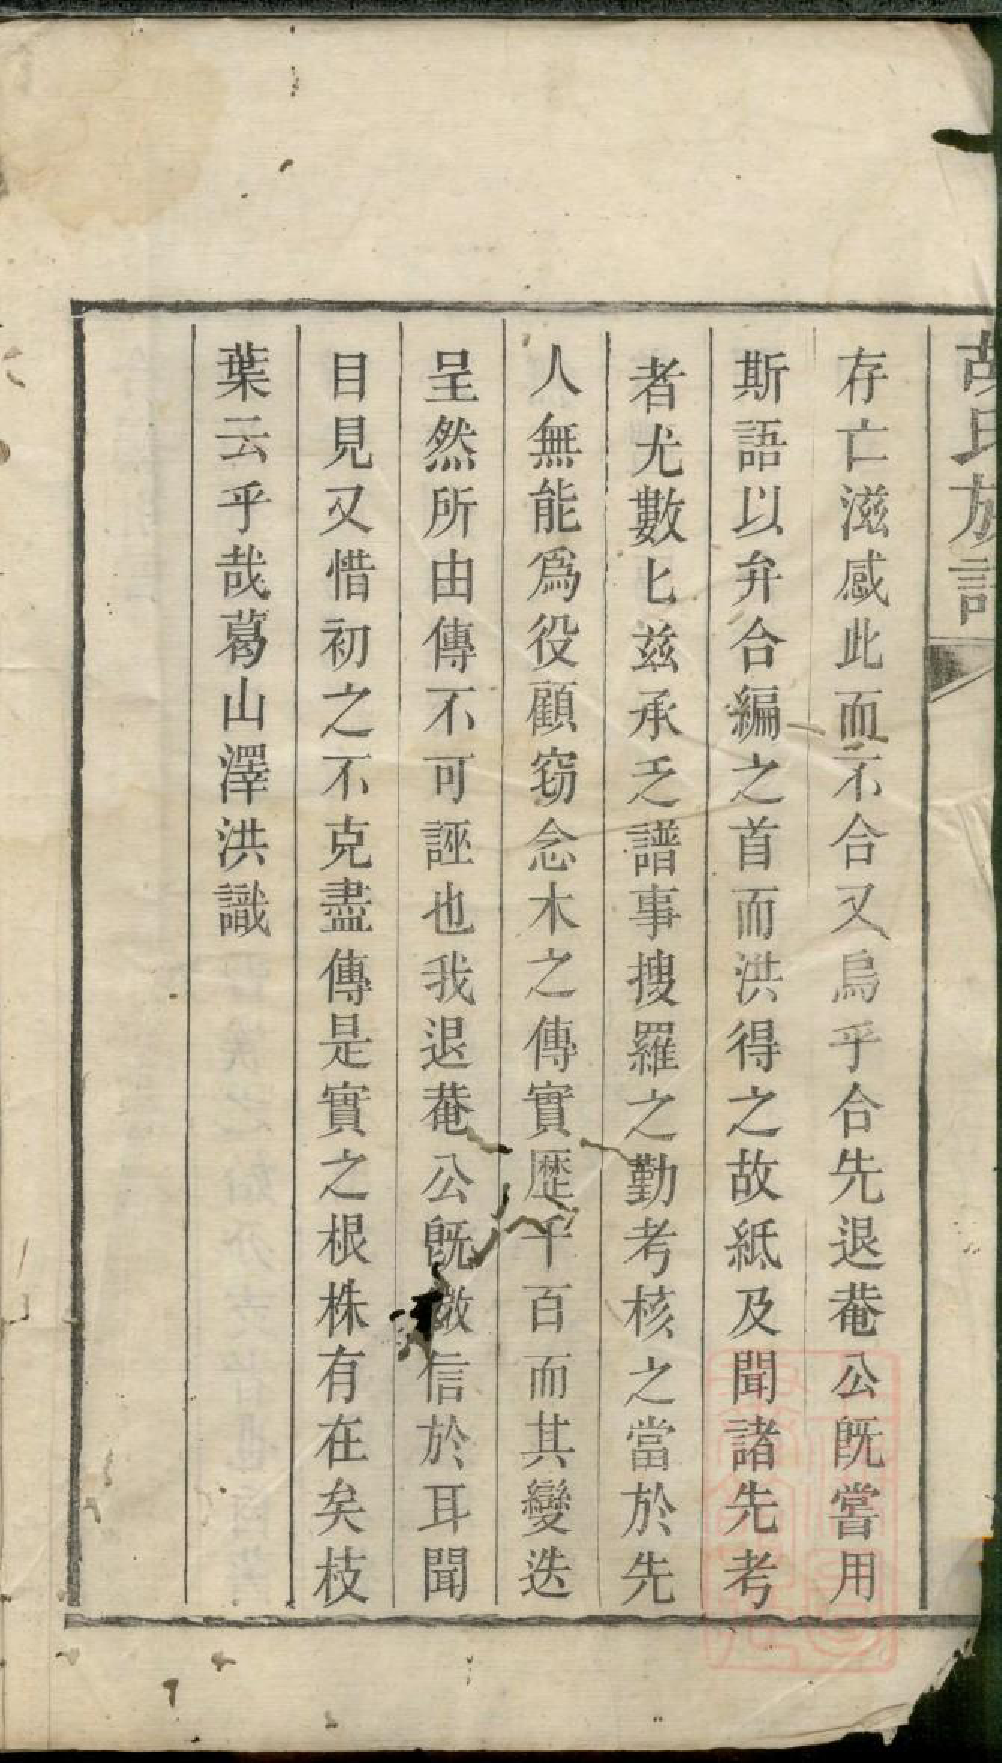 胡氏族譜
存亡滋感此而不合又烏乎合先退菴公旣嘗用
斯語以弁合編之首而洪得之故紙及聞諸先考
者尤數匕兹承乏譜事搜羅之勤考核之當於先
人無能爲役顧窃念木之傳實歷千百而其變迭
呈然所由傳不可誣也我退菴公旣信於耳聞
目見又惜初之不克盡傳是實之根株有在矣枝
葉云乎哉葛山澤洪識